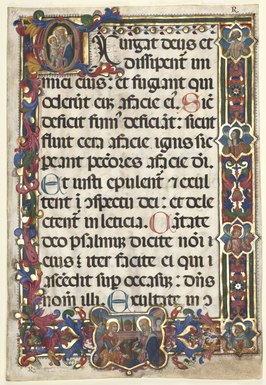 R
Exurgat deus et
dissipent ini
mici eius: et fugiant qui
oderūt eū afacie eiꝰ. Sic
deficit fumꝰ deficiāt: sicut
fluit cera afacie ignis sic
peant pctōres afacie dī.
Et iusti epulent ⁊ exul
tent ī ꝯspectu dei: et dele
ctent in leticia. Cātate
deo psalmū dicite nōi
eius: iter facite ei qui
ascēdit sup occasū: dn̄s
nom̄ illi. Exultate in ꝯ